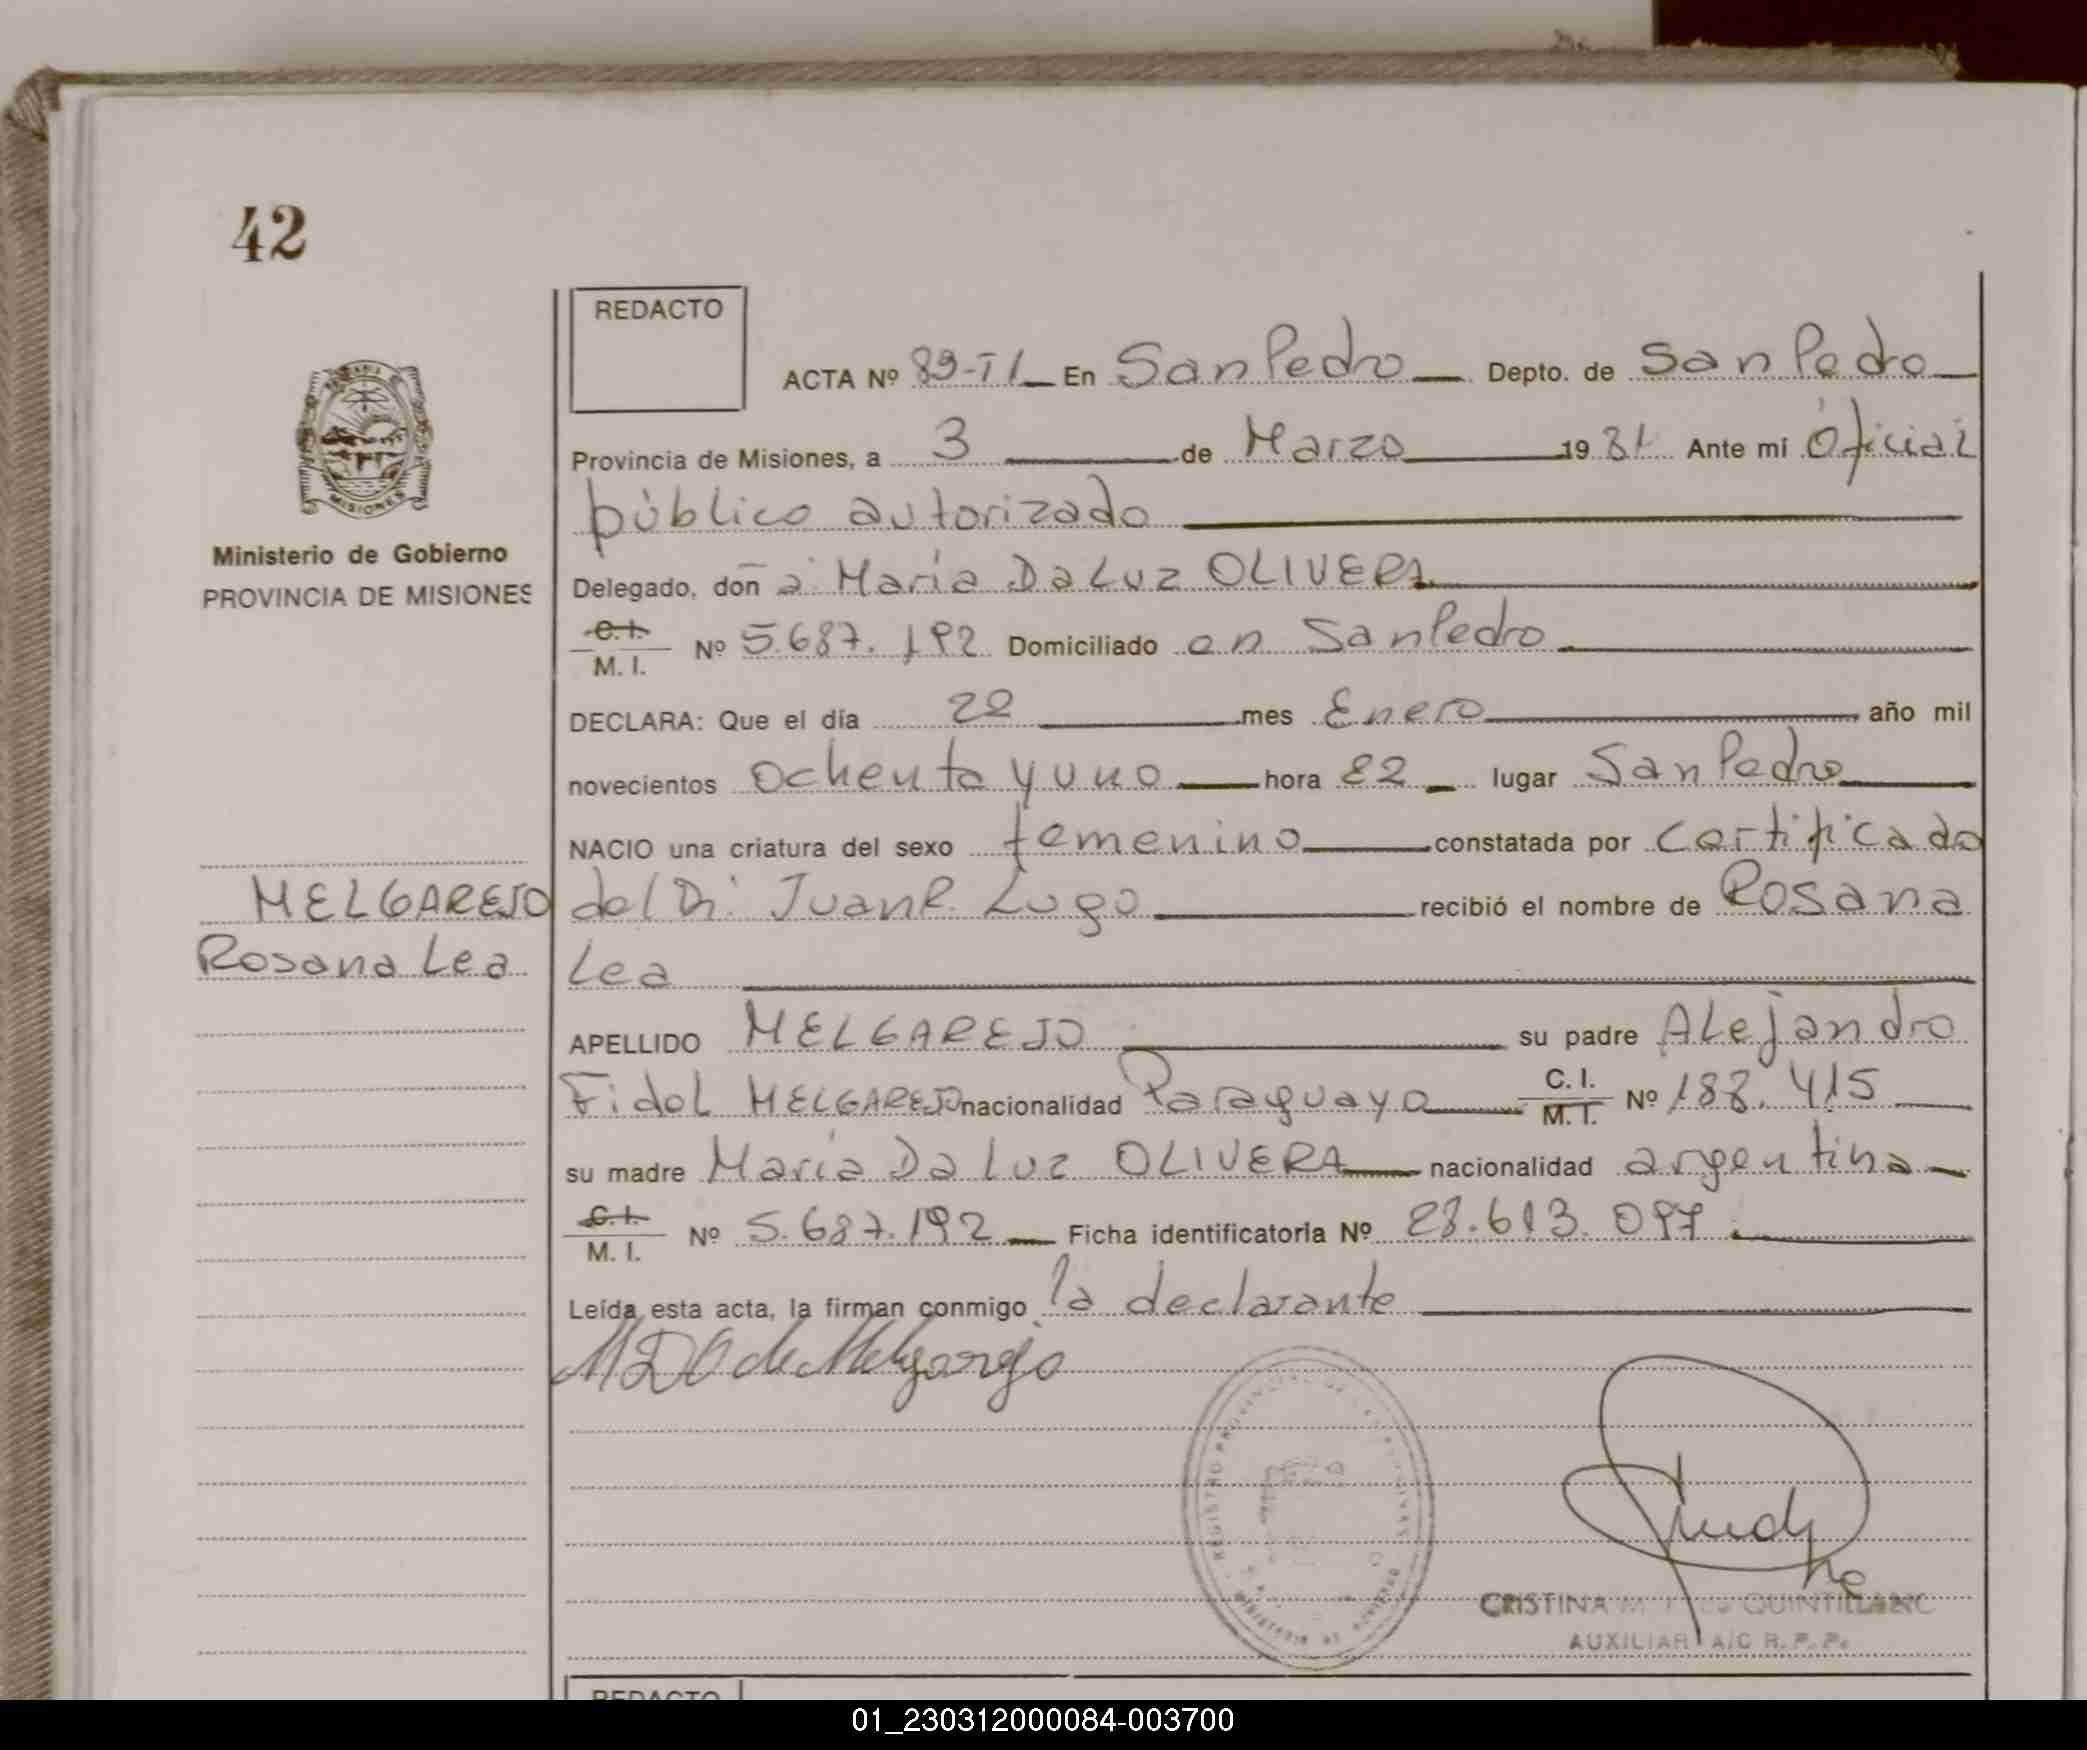 42
REDACTO
ACTA Nº 89-TI En San Pedro Depto. de San Pedro
Provincia de Misiones, a 3 de Marzo 1981 Ante mí Oficial
público autorizado
Ministerio de Gobierno
PROVINCIA DE MISIONES
Delegado, don a María Da Luz OLIVERA
C. I. M. I. Nº 5.687.192 Domiciliado en San Pedro
DECLARA: Que el día 22 mes Enero año mil
novecientos ochenta y uno hora 22 lugar San Pedro
NACIO una criatura del sexo femenino constatada por certificado
MELGAREJO del Dr. Juan R. Lugo recibió el nombre de Rosana
Rosana Lea Lea
APELLIDO MELGAREJO su padre Alejandro
Fidel MELGAREJO nacionalidad Paraguaya C. I. M. I. Nº 188.415
su madre María Da Luz OLIVERA nacionalidad argentina
C. I. M. I. Nº 5.687.192 Ficha identificatoria Nº 28.613.097
Leída esta acta, la firman conmigo la declarante
MDO de Melgarejo
CRISTINA QUINTILLAN
AUXILIAR A/C R. P. P.
REDACTO
01_230312000084-003700